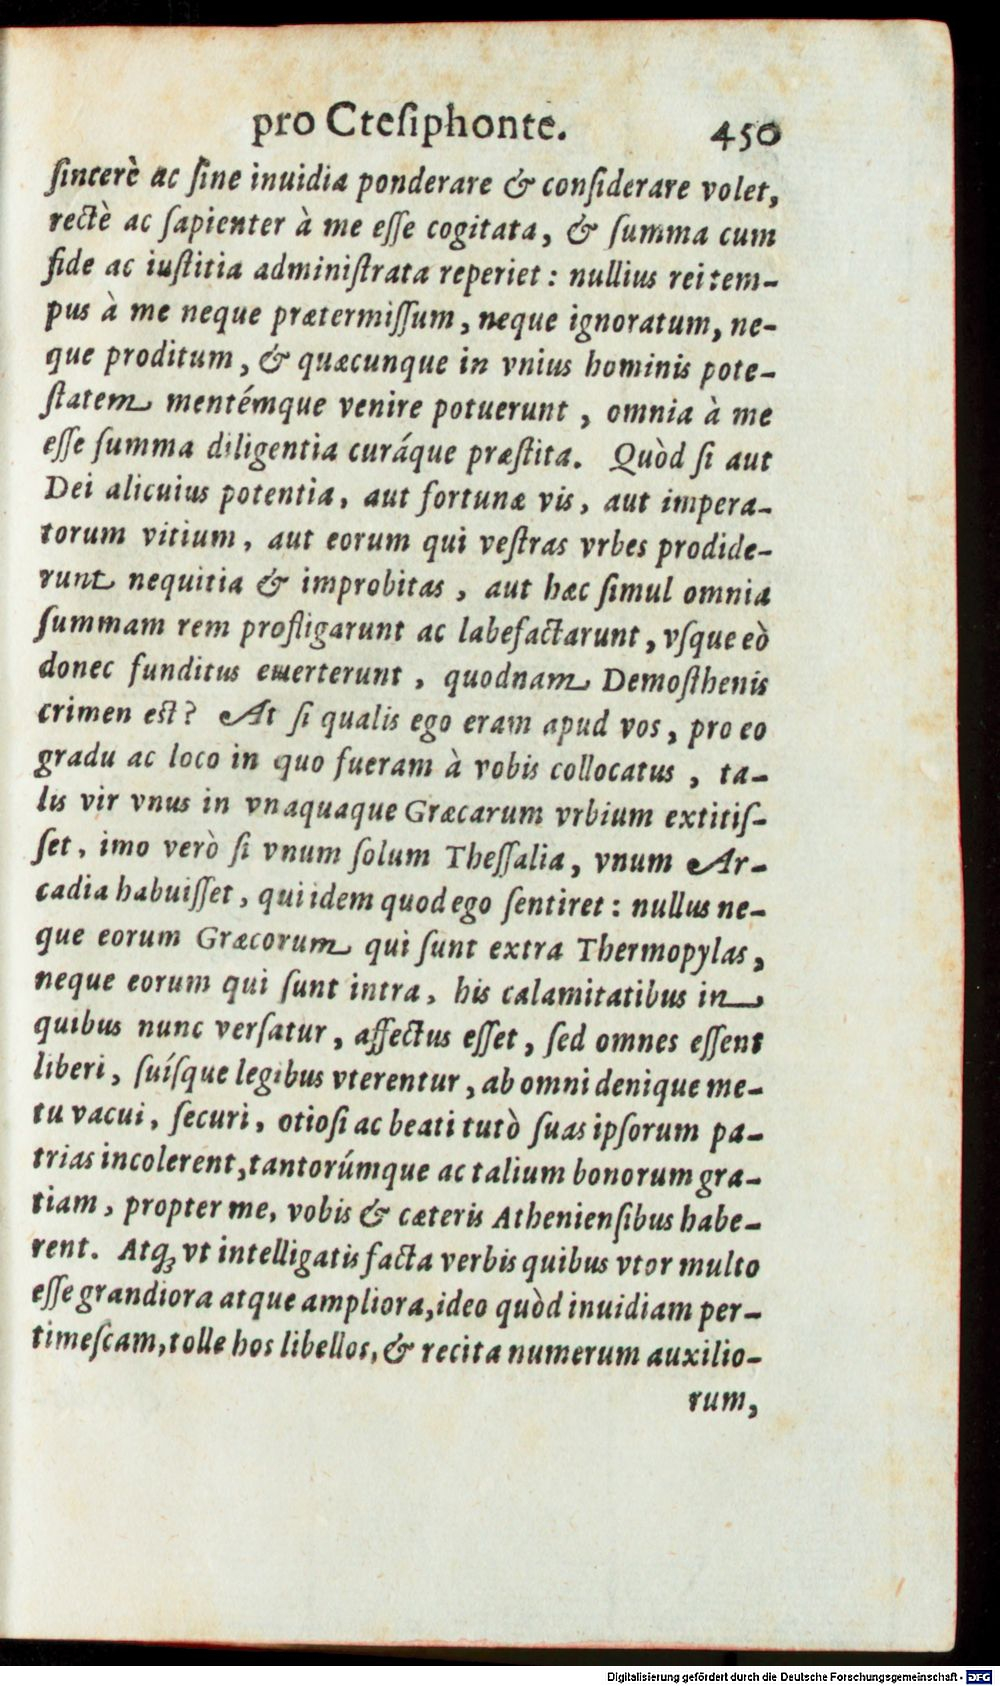 pro Cteſiphonte. 450
ſincerè ac ſine inuidia ponderare & conſiderare volet,
rectè ac ſapienter à me eſſe cogitata, & ſumma cum
fide ac iuſtitia adminiſtrata reperiet : nullius rei tem-
pus à me neque prætermiſſum, neque ignoratum, ne-
que proditum, & quæcunque in vnius hominis pote-
ſtatem mentémque venire potuerunt, omnia à me
eſſe ſumma diligentia curáque præſtita. Quòd ſi aut
Dei alicuius potentia, aut fortunæ vis, aut impera-
torum vitium, aut eorum qui veſtras vrbes prodide-
runt nequitia & improbitas, aut hæc ſimul omnia
ſummam rem profligarunt ac labefactarunt, vſque eò
donec funditus euerterunt, quodnam Demoſthenis
crimen eſt? At ſi qualis ego eram apud vos, pro eo
gradu ac loco in quo fueram à vobis collocatus, ta-
lis vir vnus in vnaquaque Græcarum vrbium extitiſ-
ſet, imo verò ſi vnum ſolum Theſſalia, vnum Ar-
cadia habuiſſet, qui idem quod ego ſentiret : nullus ne-
que eorum Græcorum qui ſunt extra Thermopylas,
neque eorum qui ſunt intra, his calamitatibus in
quibus nunc verſatur, affectus eſſet, ſed omnes eſſent
liberi, ſuíſque legibus vterentur, ab omni denique me-
tu vacui, ſecuri, otioſi ac beati tutò ſuas ipſorum pa-
trias incolerent, tantorúmque ac talium bonorum gra-
tiam, propter me, vobis & cæteris Athenienſibus habe-
rent. Atq; vt intelligatis facta verbis quibus vtor multo
eſſe grandiora atque ampliora, ideo quòd inuidiam per-
timeſcam, tolle hos libellos, & recita numerum auxilio-
rum,
Digitalisierung gefördert durch die Deutsche Forschungsgemeinschaft - DFG